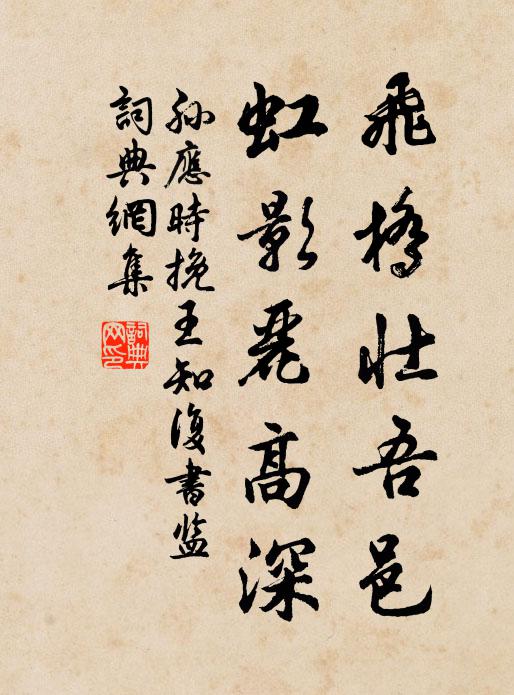 飛橋壯吾邑
虹影麗高深
孙應時挽王知復書监
詞典網集
詞典網印